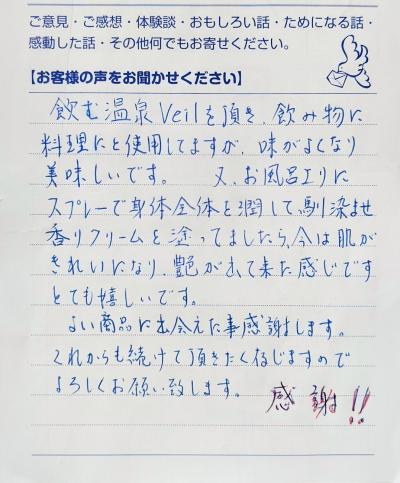 ご意見・ご感想・体験談・おもしろい話・ためになる話・
感動した話・その他何でもお寄せください。
【お客様の声をお聞かせください】
飲む温泉Veilを頂き、飲み物に
料理にと使用してますが、味がよくなり
美味しいです。 又、お風呂上りに
スプレーで身体全体を潤して、馴染ませ
香りクリームを塗ってましたら、今は肌が
きれいになり、艶が出て来た感じです
とても嬉しいです。
よい商品に出会えた事感謝します。
これからも続けて頂きたく存じますので
よろしくお願い致します。 感謝!!